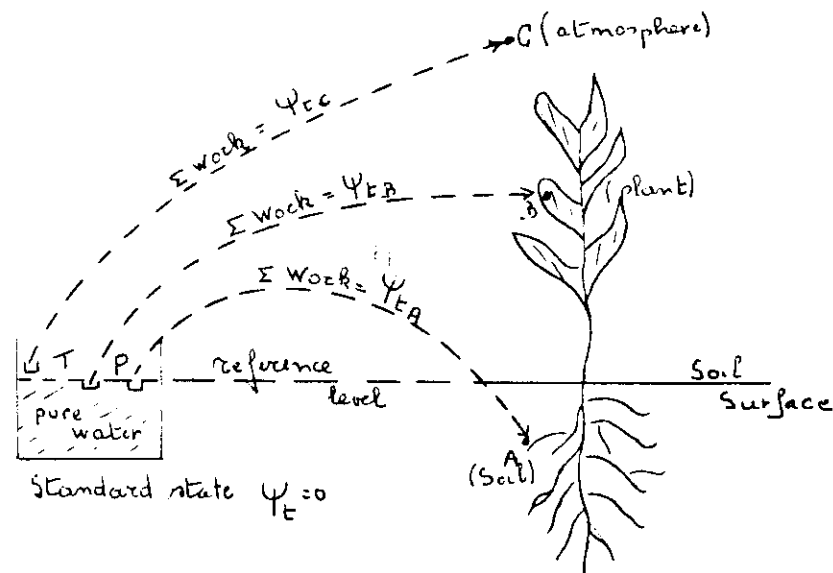 C (atmosphere)
Σ work = Ψtc
Σ work = Ψt B
B
(plant)
Σ Work = Ψt A
T P
reference
level
Soil
Surface
pure
water
A
(Soil)
Standard state Ψt = 0